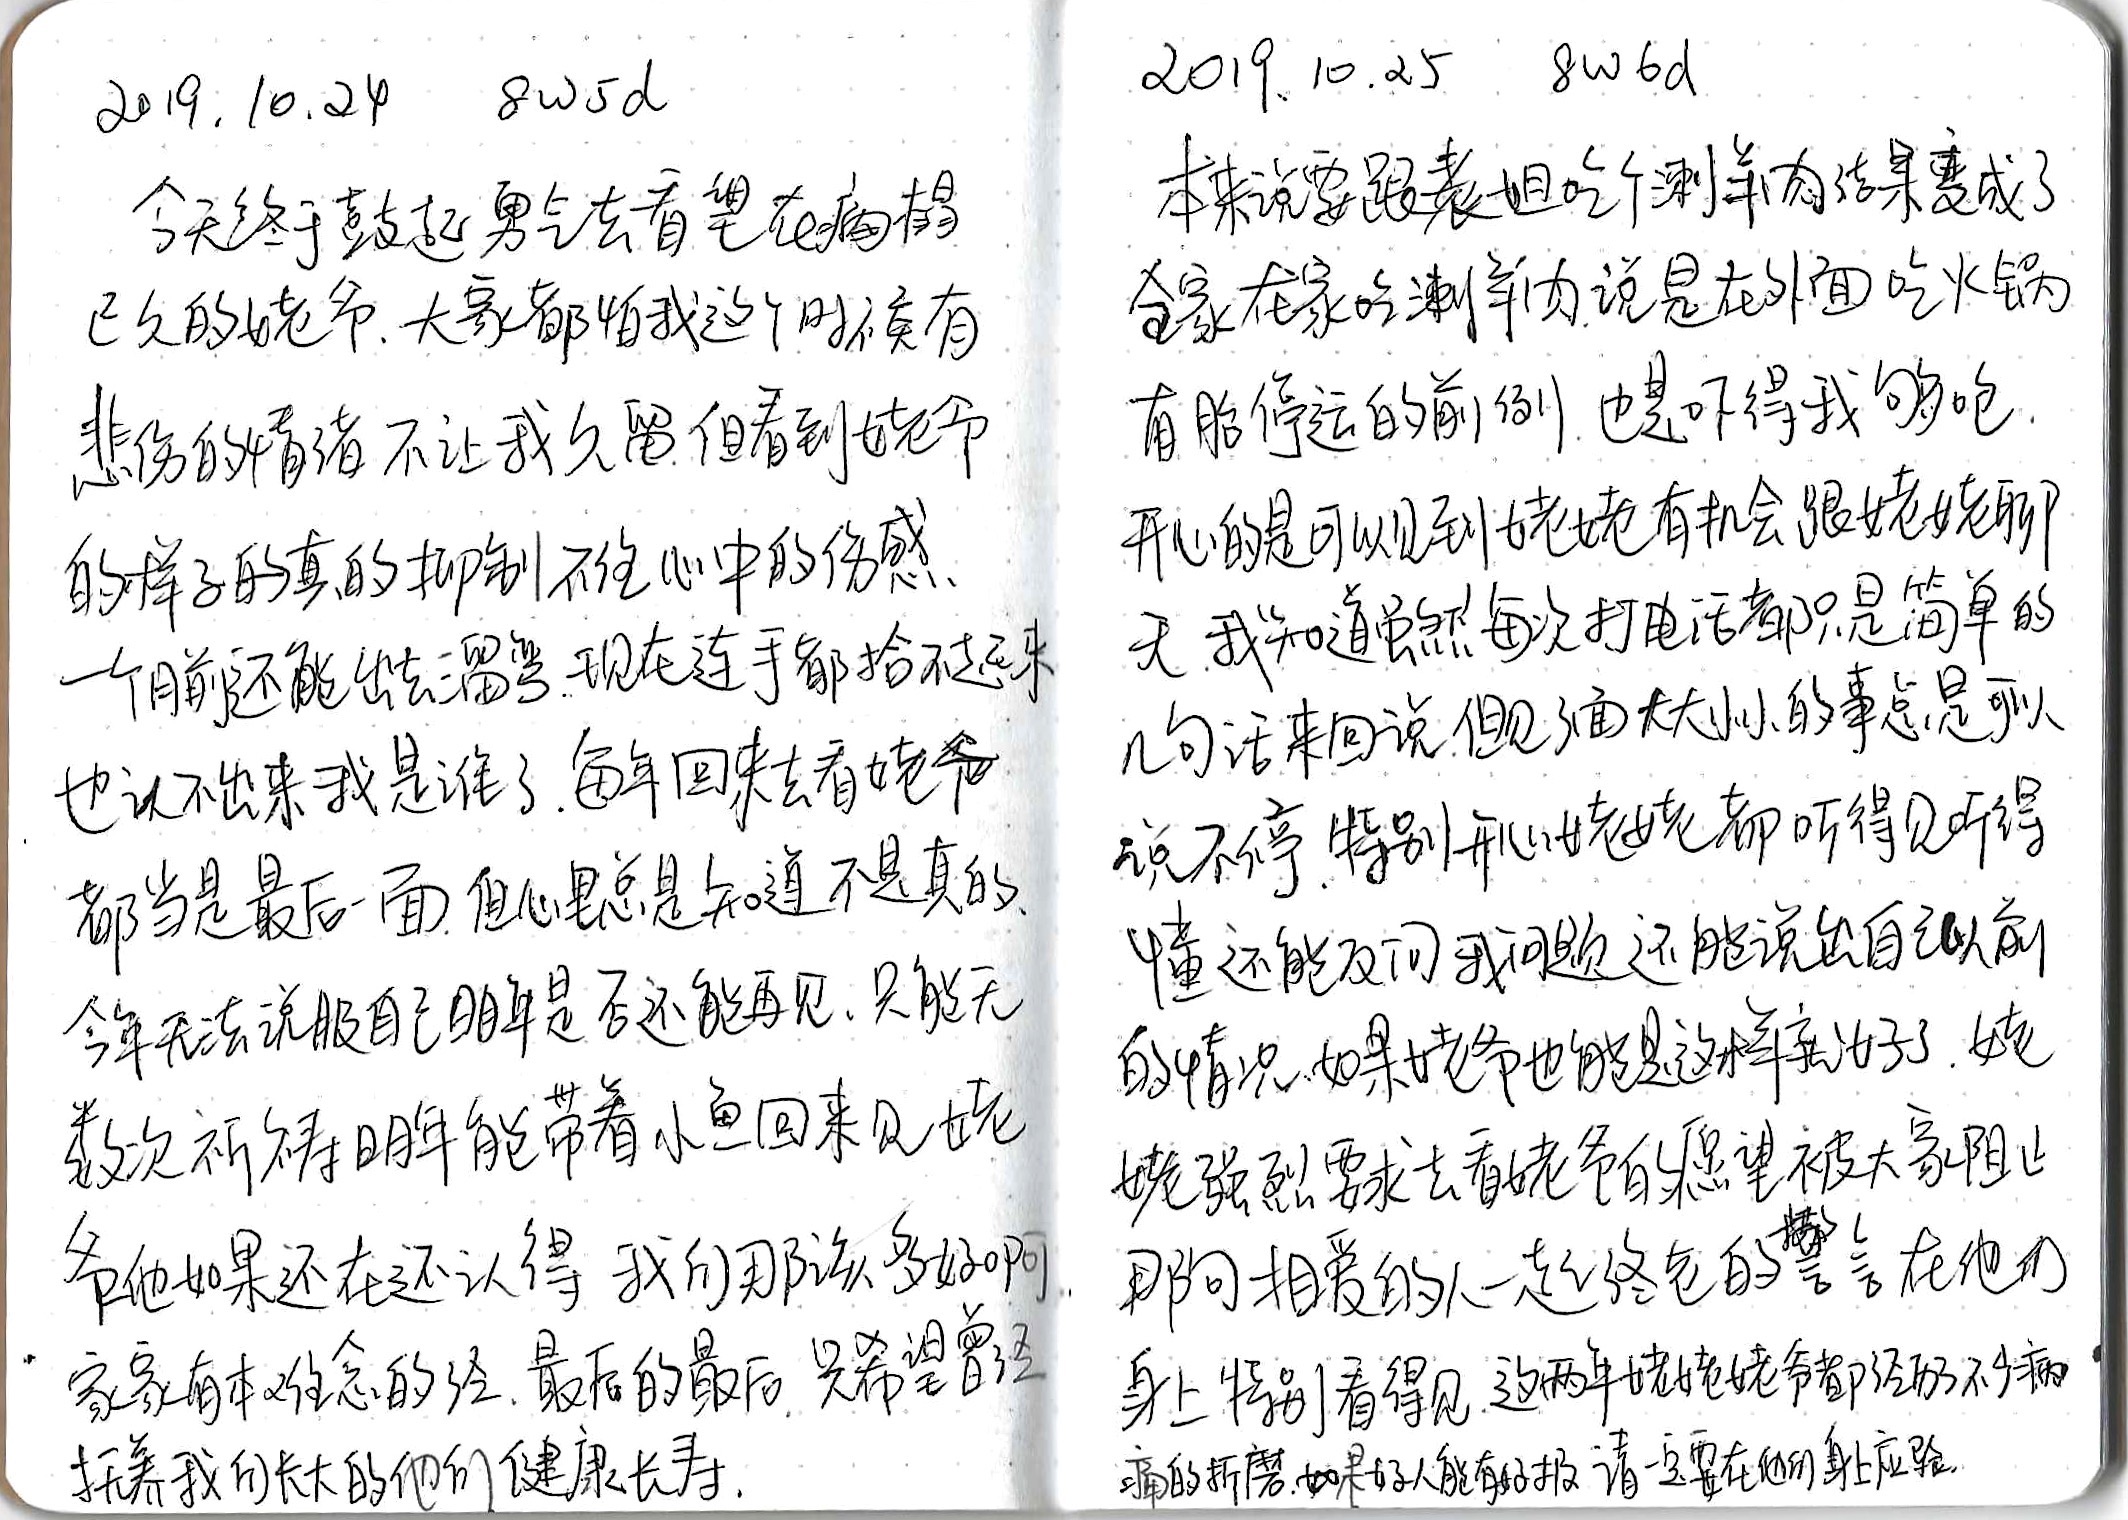 2019.10.24 8w5d
今天终于鼓起勇气去看望在病榻
已久的姥爷.大家都怕我这个时候有
悲伤的情绪不让我久留.但看到姥爷
的样子的真的抑制不住心中的伤感.
一个月前还能出去溜弯.现在连手都抬不起来
也认不出来我是谁了.每年回来去看姥爷
都当是最后一面.但心里总是知道不是真的.
今年无法说服自己明年是否还能再见.只能无
数次祈祷明年能带着小鱼回来见姥
爷他如果还在还认得我们那该多好啊.
家家有本难念的经.最后的最后.只希望曾经
抚养我们长大的他们健康长寿.
2019.10.25 8w6d
本来说要跟表姐吃个涮羊肉结果变成了
全家在家吃涮羊肉.说是在外面吃火锅
有胎停运的前例.也是吓得我够呛.
开心的是可以见到姥姥有机会跟姥姥聊
天.我知道虽然每次打电话都只是简单的
几句话来回说.但见了面大大小小的事总是可以
说不停.特别开心姥姥都听得见听得
懂还能反问我问题还能说出自己以前
的情况.如果姥爷也能是这样就好了.姥
姥强烈要求去看姥爷的愿望被大家阻止
那句相爱的人一起终老的誓言在他们
身上特别看得见.这两年姥姥姥爷都经历了不少病
痛的折磨.如果好人能有好报请一定要在他们身上应验.